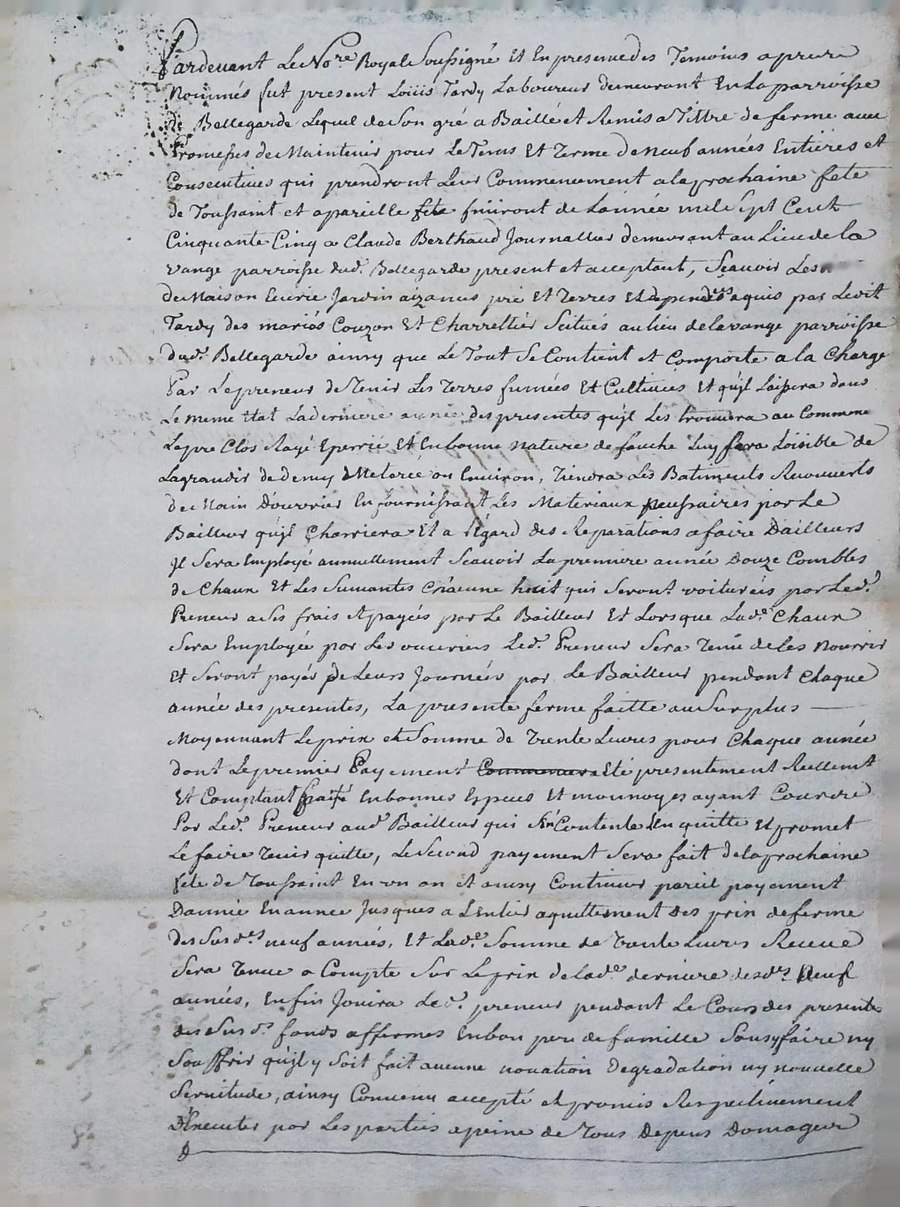 Pardevant Le No.re Royal Soussigné Et En presence des Temoins apres
nommés fut present Loüis Tardy Laboureur demeurant En La parroisse
de Bellegarde Lequel de Son gré a Baillé et Remis a Tittre de ferme avec
Promesses de Maintenir pour Le Tems Et Terme de Neuf années Entieres et
Consecutives qui prendront Leur Commencement a la prochaine fete
de Toussaint et a pareille fete finiront de Lannée mile Sept Cent
Cinquante Cinq a Claude Berthaud Journallier demeurant au Lieu de la
vange parroisse dud. Bellegarde present et acceptant, Sçavoir Les
de Maison Ecurie Jardin aizances pré Et Terres Et dependces aquis par Ledit
Tardy des mariés Couzon Et Charrettier Scitués au lieu de lavange parroisse
dud. Bellegarde ainsy que Le Tout Se Contient et Comporte a la Charge
Par Le preneur de Tenir Les Terres fumées Et Cultivées Et qu'il Laissera dans
Le meme Etat La derniere année des presentes qu'il Les trouvera au Commencement
Le pre Clos Rayé Eperrié Et En bonne nature de fauche Luy fera Loisible de
Lagrandir de demy Meterée ou Environ, Tiendra Les Batiments Recouverts
de Main Douvrier En fournissant Les Materiaux necessaires par Le
Bailleur qu'il Charriera Et a L'Egard des Reparations a faire Dailleurs
Il Sera Employé annuellement Scavoir La premiere année Douze Combles
de Chaux Et Les Suivantes Chacune huit qui Seront voiturées par Led.
Preneur a Ses frais Et payées par Le Bailleur Et Lorsque Lad.e Chaux
Sera Employée par Les ouvriers Led. Preneur Sera Tenu de Les Nourrir
Et Seront payés de Leurs Journées par Le Bailleur pendant Chaque
année des presentes, La presente ferme faitte au Surplus —
Moyennant Le prix et Somme de Trente Livres pour Chaque année
dont Le premier Payement Eté presentement Reellement
Et Comptant fait En bonnes Especes et monnoyes ayant Cours
Par Led. Preneur aud. Bailleur qui S'en Contente L'en quitte Et promet
Le faire Tenir quitte, Le Second payement Sera fait de la prochaine
fete de Toussaint En un an et ainsy Continuer pareil payement
Dannée En année Jusques a L'entier aquittement des prix de ferme
des Susd.es neuf années, Et Lad.e Somme de Trente Livres Receue
Sera Tenue a Compte Sur Le prix de Lad.e derniere desd.es Neuf
années, Enfin Jouira Led. preneur pendant Le Cours des presentes
des Susd. fonds affermés En bon pere de famille Sans y faire ny
Souffrir qu'il y Soit fait aucune novation Degradation ny nouvelle
Servitude, ainsy Convenu accepté et promis Respectivement
D'Executer par Les parties a peine de Tous Depens Domages